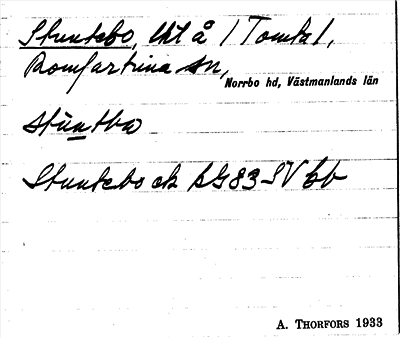 Stuntebo, lht å 1 Tomta1,
Romfartuna sn,
Norrbo hd, Västmanlands län
stùntba
Stuntebo ek LG83 SV bb
A. THORFORS 1933